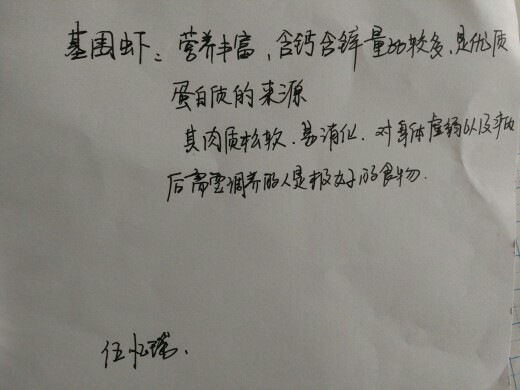 基围虾：营养丰富，含钙含锌量比较多，是优质
蛋白质的来源
其肉质松软、易消化，对身体虚弱以及病
后需要调养的人是极好的食物.
伍忆